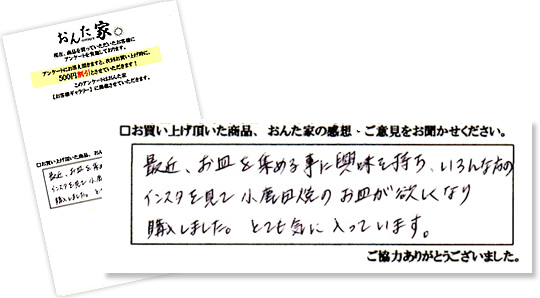 おんた家
現在、商品を買っていただいたお客様に
アンケートを実施しております。
アンケートにお答え頂きますと、次回お買い上げ時に、
500円割引とさせていただきます!
このアンケートはおんた家
【お客様ギャラリー】に掲載させていただきます。
□お買い上げ頂いた商品、おん
最近、お皿を集め
インスタを見て小鹿
購入しました。と
□お買い上げ頂いた商品、おんた家の感想・ご意見をお聞かせください。
最近、お皿を集める事に興味を持ち、いろんな方の
インスタを見て小鹿田焼のお皿が欲しくなり
購入しました。とても気に入っています。
ご協力ありがとうございました。